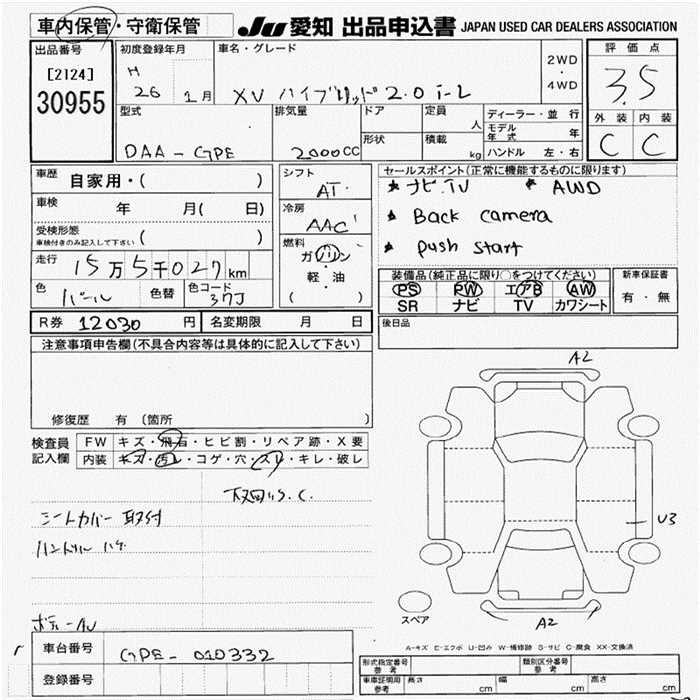 車内保管・守衛保管 JU 愛知 出品申込書 JAPAN USED CAR DEALERS ASSOCIATION
出品番号 [2124] 30955
初度登録年月 H 26 1月
車名・グレード XV ハイブリッド 2.0 i-L
2WD ・ 4WD
評価点 3.5
外装 C 内装 C
型式 DAA-GPE
排気量 2000CC
ドア 形状
定員 人
積載 kg
ディーラー・並行
モデル年式 年
ハンドル 左・右
車歴 自家用・( )
車検 年 月( 日)
受検形態 車検付きのみ記入して下さい ( )
走行 15万5千027km
色 パール 色替 色コード 37J
シフト AT
冷房 AAC
燃料 ガソリン ・ 軽・油 ( )
セールスポイント(正常に機能するものに限ります)
★ ナビ.TV ★ AWD
★ Back camera
★ push start
装備品(純正品に限り○をつけてください)
PS PW エアB AW
SR ナビ TV カワシート
新車保証書 有・無
R券 12030円 名変期限 月 日
後日品
注意事項申告欄(不具合内容等は具体的に記入して下さい)
修復歴 有 〔箇所 〕
検査員記入欄
FW キズ・飛石・ヒビ割・リペア跡・X要
内装 キズ・汚レ・コゲ・穴・スレ・キレ・破レ
下回りS.C.
シートカバー取付
ハンドル ハゲ
ボディーAU
A2
U3
A2
スペア
A-キズ E-エクボ U-凹み W-補修跡 S-サビ C-腐食 XX-交換済
車台番号 GPE-010332
登録番号
形式指定番号 参考 類別区分番号 参考
車庫証明用 参考 長さ cm 幅 cm 高さ cm